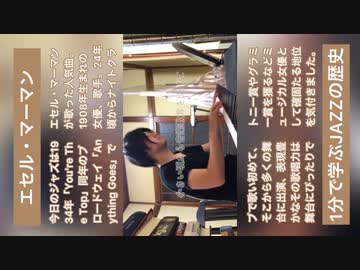 1分で学ぶJAZZの歴史
エセル・マーマン
今日のジャズは19
34年「You're Th
e Top」同年のブ
ロードウェイ「An
ything Goes」で
エセル・マーマン
が歌った人気曲。
1908年生まれの
女優、歌手。24年
頃からナイトクラ
ブで歌い初めて、
そこから多くの舞
台に出演、表現豊
かなその歌唱力は
舞台にぴったりで
トニー賞やグラミ
ー賞を獲るなどミ
ュージカル女優と
して確固たる地位
を気付きました。